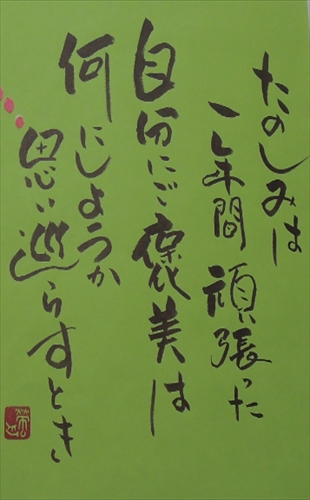 たのしみは
一年間頑張った
自分にご褒美は
何にしようか
思い巡らすとき